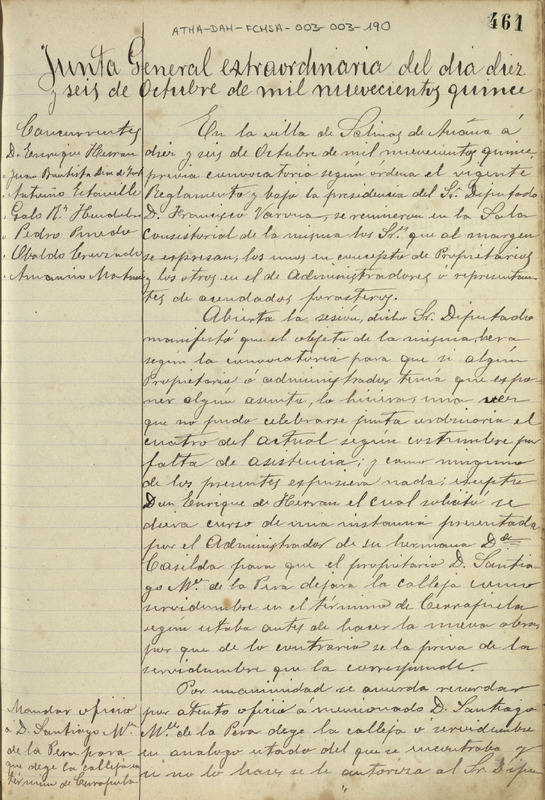 ATHA-DAH-FCHSA-003-003-190
461
Junta General extraordinaria del dia diez
y seis de Octubre de mil nuevecientos quince
Concurrentes
D. Enrique Herran
Juan Bautista
Antonio
Galo
Pedro Pinedo
Ubaldo
Amancio
En la villa de Salinas de Añana á
diez y seis de Octubre de mil nuevecientos quince
previa convocatoria según ordena el vigente
Reglamento y bajo la presidencia del Sr. Diputado
D. Francisco Varona, se reunieron en la Sala
Consistorial de la misma los Sres que al margen
se expresan, los unos en concepto de Propietarios
y los otros en el de Administradores ó representan
tes de acendados forasteros.
Abierta la sesión, dicho Sr. Diputado
manifestó que el objeto de la misma era
según la convocatoria para que si algún
Propietario ó administrador tenía que expo
ner algún asunto, lo hiciera; una vez
que no pudo celebrarse junta ordinaria el
cuatro del actual según costumbre por
falta de asistencia; y como ninguno
de los presentes expusiera nada; excepto
Don Enrique de Herran el cual solicitó se
diera curso de una instancia presentada
por el Administrador de su hermana Dª
Casilda para que el propietario D. Santia
go Mª de la Pera dejara la calleja como
servidumbre en el término de
según estaba antes de hacer la nueva obra,
por que de lo contrario se la priva de la
servidumbre que la corresponde.
Por unanimidad se acuerda recordar
por atento oficio á mencionado D. Santiago
Mª de la Pera dege la calleja ó servidumbre
en analogo estado del que se encontraba y
si no lo hace se le autoriza al Sr. Dipu
Mandar oficio
a D. Santiago Mª
de la Pera para
que dege la calleja en
término de